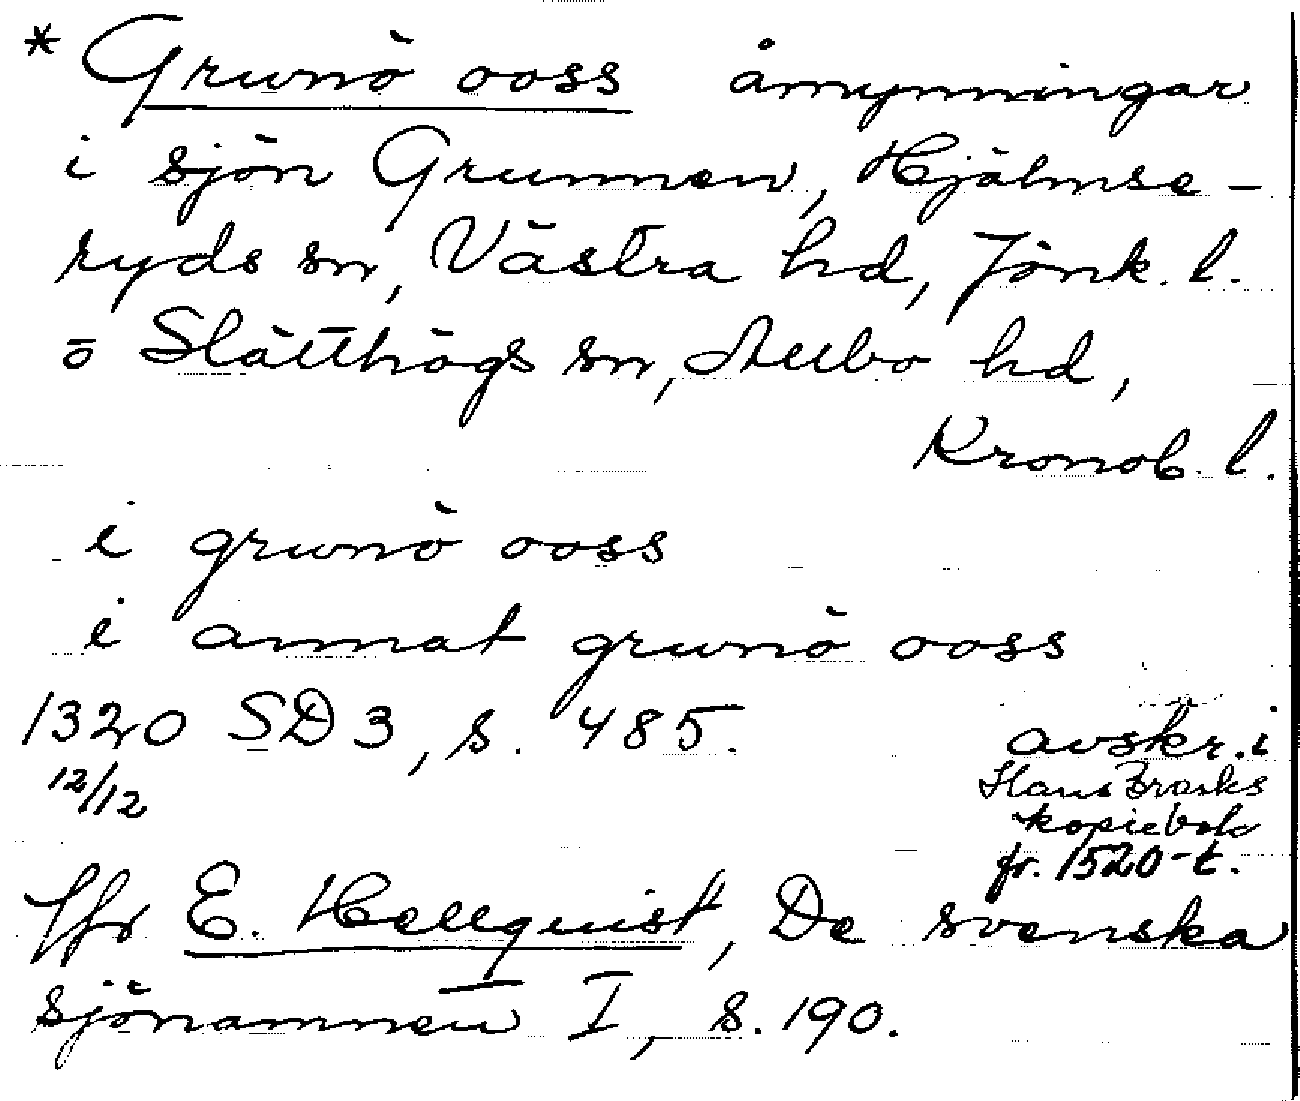 * Grunö ooss åmynningar
i sjön Grunnen, Hjälmse-
ryds sn, Västra hd, Jönk. l.
o Slätthögs sn, Allbo hd,
Kronob. l.
i grunö ooss
i annat grunö ooss
1320 SD 3, s. 485.
12/12
avskr. i
Hans Brasks
kopiebok
fr. 1520-t.
Jfr E. Hellquist, De svenska
sjönamnen I, s. 190.